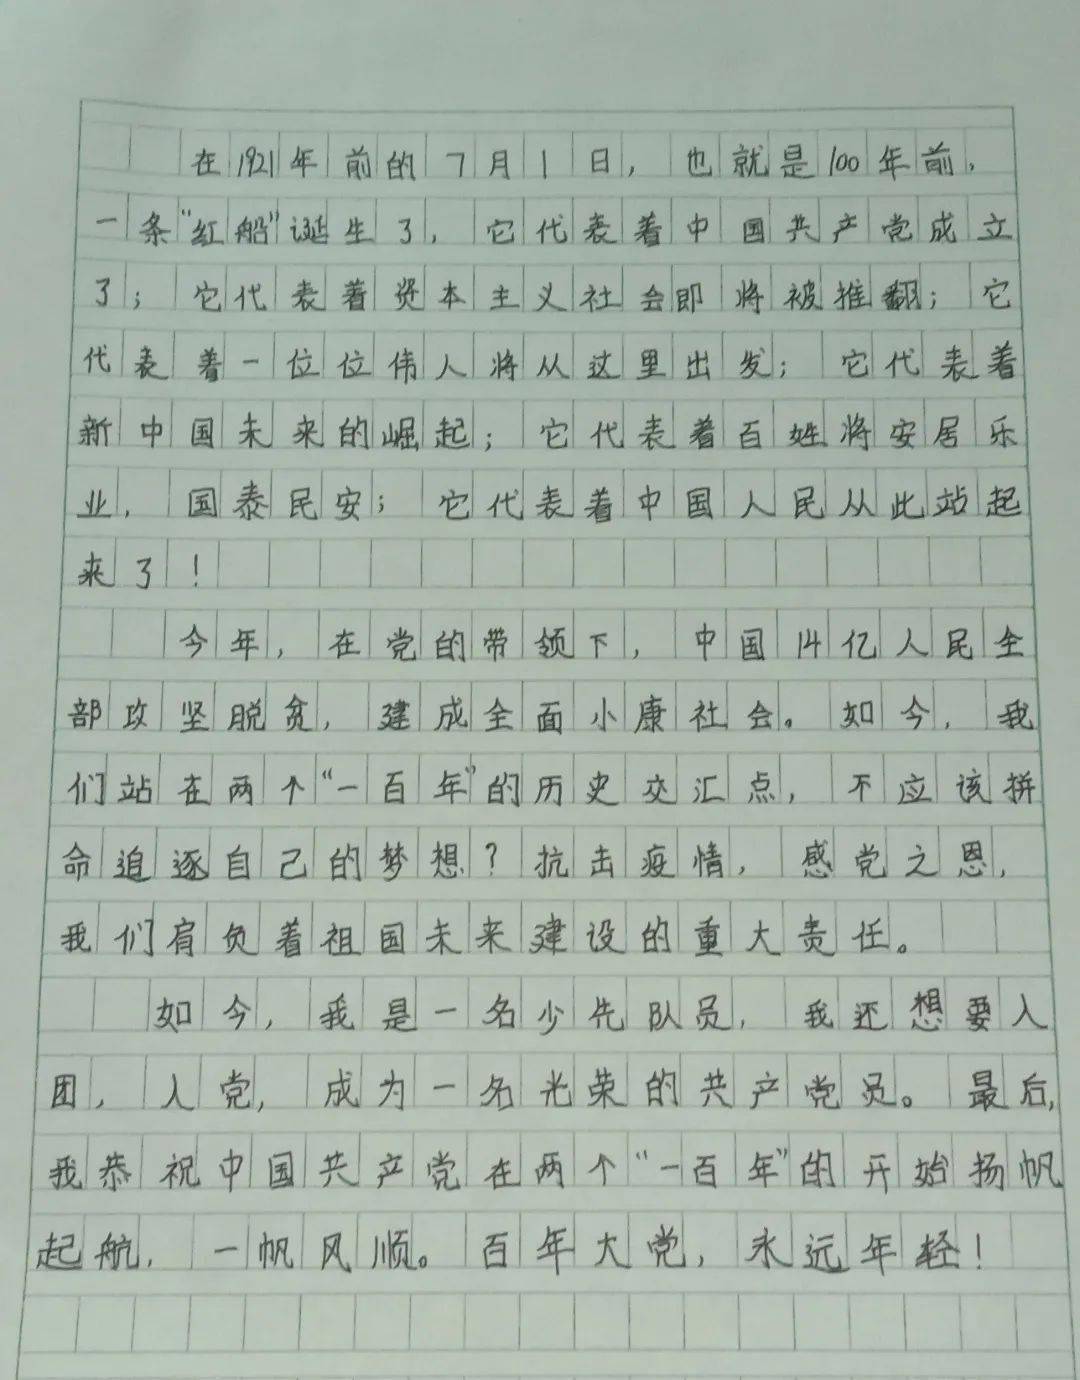 在1921年前的7月1日，也就是100年前，
一条“红船”诞生了，它代表着中国共产党成立
了；它代表着资本主义社会即将被推翻；它
代表着一位位伟人将从这里出发；它代表着
新中国未来的崛起；它代表着百姓将安居乐
业，国泰民安；它代表着中国人民从此站起
来了！
今年，在党的带领下，中国14亿人民全
部攻坚脱贫，建成全面小康社会。如今，我
们站在两个“一百年”的历史交汇点，不应该拼
命追逐自己的梦想？抗击疫情，感党之恩，
我们肩负着祖国未来建设的重大责任。
如今，我是一名少先队员，我还想要入
团，入党，成为一名光荣的共产党员。最后，
我恭祝中国共产党在两个“一百年”的开始扬帆
起航，一帆风顺。百年大党，永远年轻！